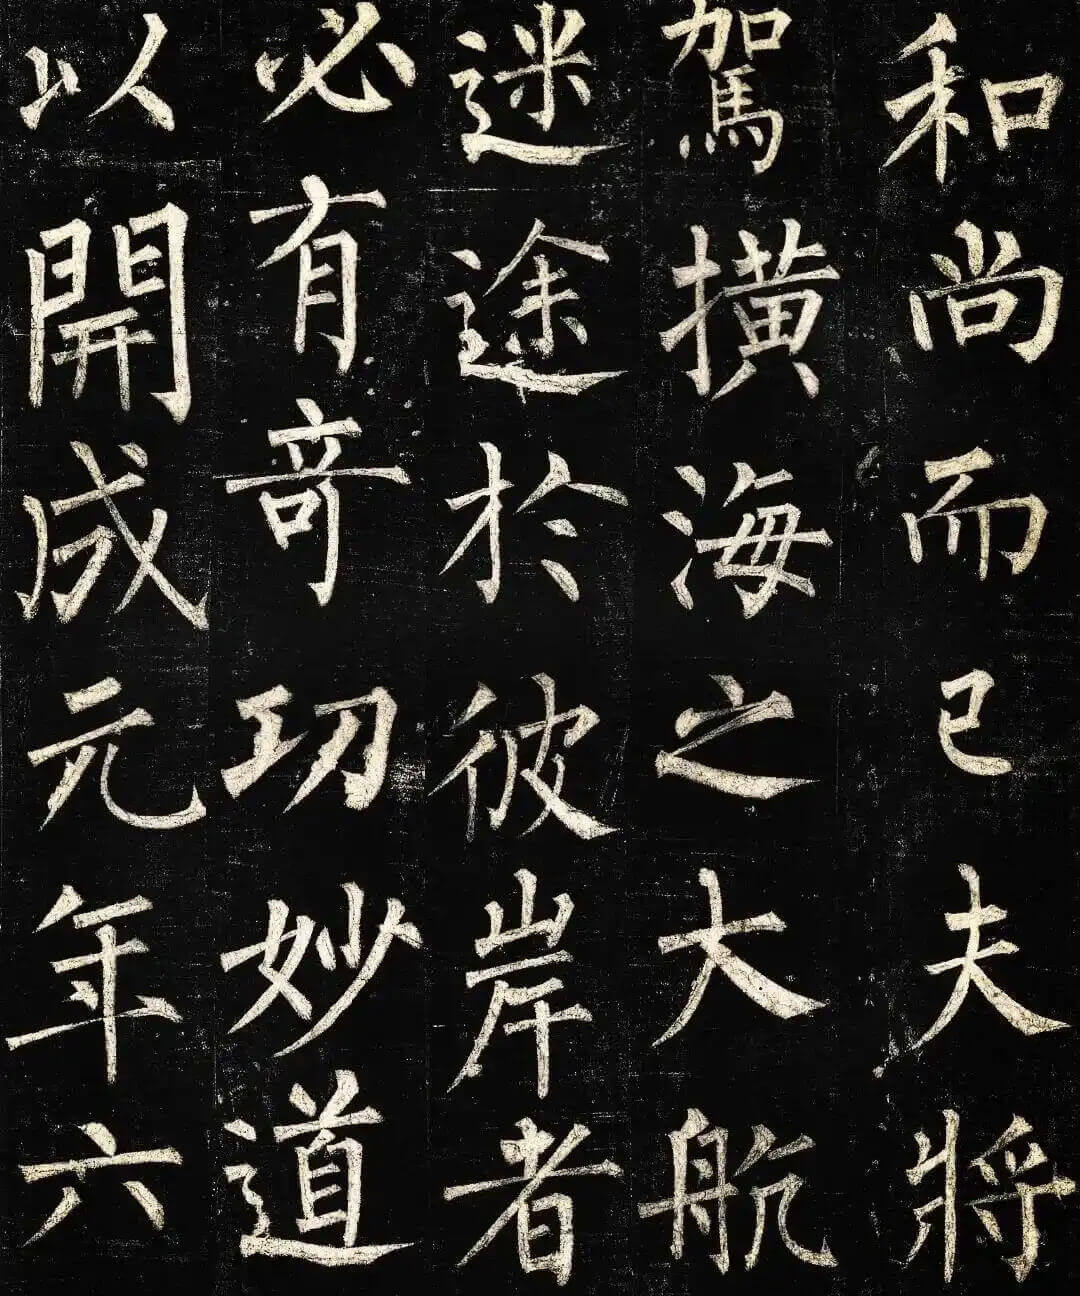 和尚而已夫將
駕橫海之大航
迷途於彼岸者
必有竒功妙道
以開成元年六